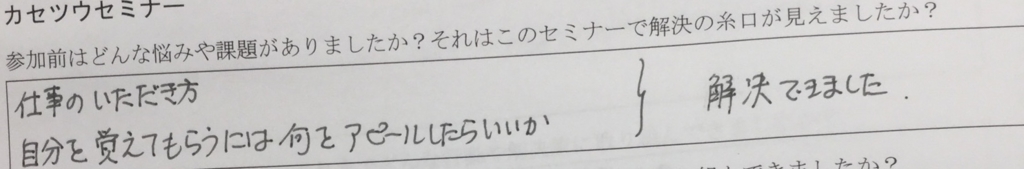 カセツウセミナー
参加前はどんな悩みや課題がありましたか？それはこのセミナーで解決の糸口が見えましたか？
仕事のいただき方
自分を覚えてもらうには何をアピールしたらいいか
解決できました.
できましたか？